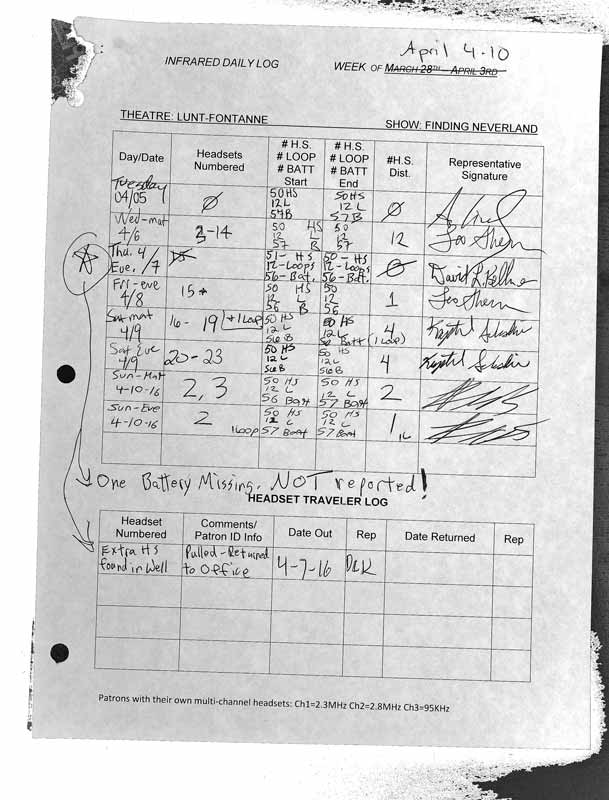 April 4-10
INFRARED DAILY LOG WEEK OF MARCH 28TH – APRIL 3RD
THEATRE: LUNT-FONTANNE SHOW: FINDING NEVERLAND
Day/Date Headsets Numbered # H.S. # LOOP # BATT Start # H.S. # LOOP # BATT End #H.S. Dist. Representative Signature
Tuesday 04/05 Ø 50 HS 12 L 57 B 50 HS 12 L 57 B Ø
Wed-mat 4/6 2-14 50 HS 12 L 57 B 50 12 57 12
Thu. 4/7 Eve. 51- HS 12-Loops 56-Bat. 50- HS 12-Loops 56-Bat. Ø
Fri-eve 4/8 15 50 HS 12 L 56 B 50 12 56 1
Sat mat 4/9 16-19 +1 Loop 50 HS 12 L 56 B 50 HS 12 L 56 Batt (1 Loop) 4
Sat Eve 4/9 20-23 50 HS 12 L 56 B 50 HS 12 L 56 B 4
Sun-Mat 4-10-16 2, 3 50 HS 12 L 56 Batt 50 HS 12 L 57 Batt 2
Sun-Eve 4-10-16 2 1Loop 50 HS 12 L 57 Batt 50 HS 12 L 57 Batt 1 1L
One Battery Missing. NOT reported!
HEADSET TRAVELER LOG
Headset Numbered Comments/ Patron ID Info Date Out Rep Date Returned Rep
Extra HS found in Well Pulled-Returned to Office 4-7-16 DLK
Patrons with their own multi-channel headsets: Ch1=2.3MHz Ch2=2.8MHz Ch3=95KHz